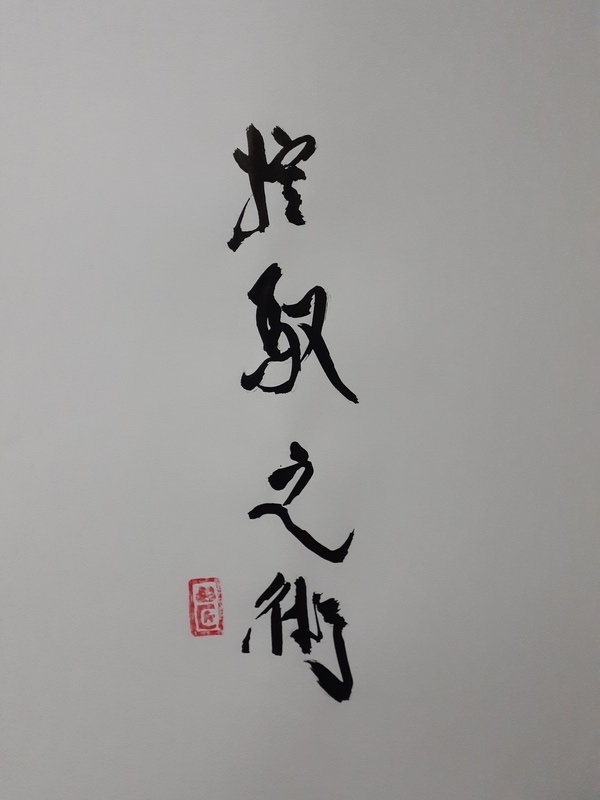 控馭之術